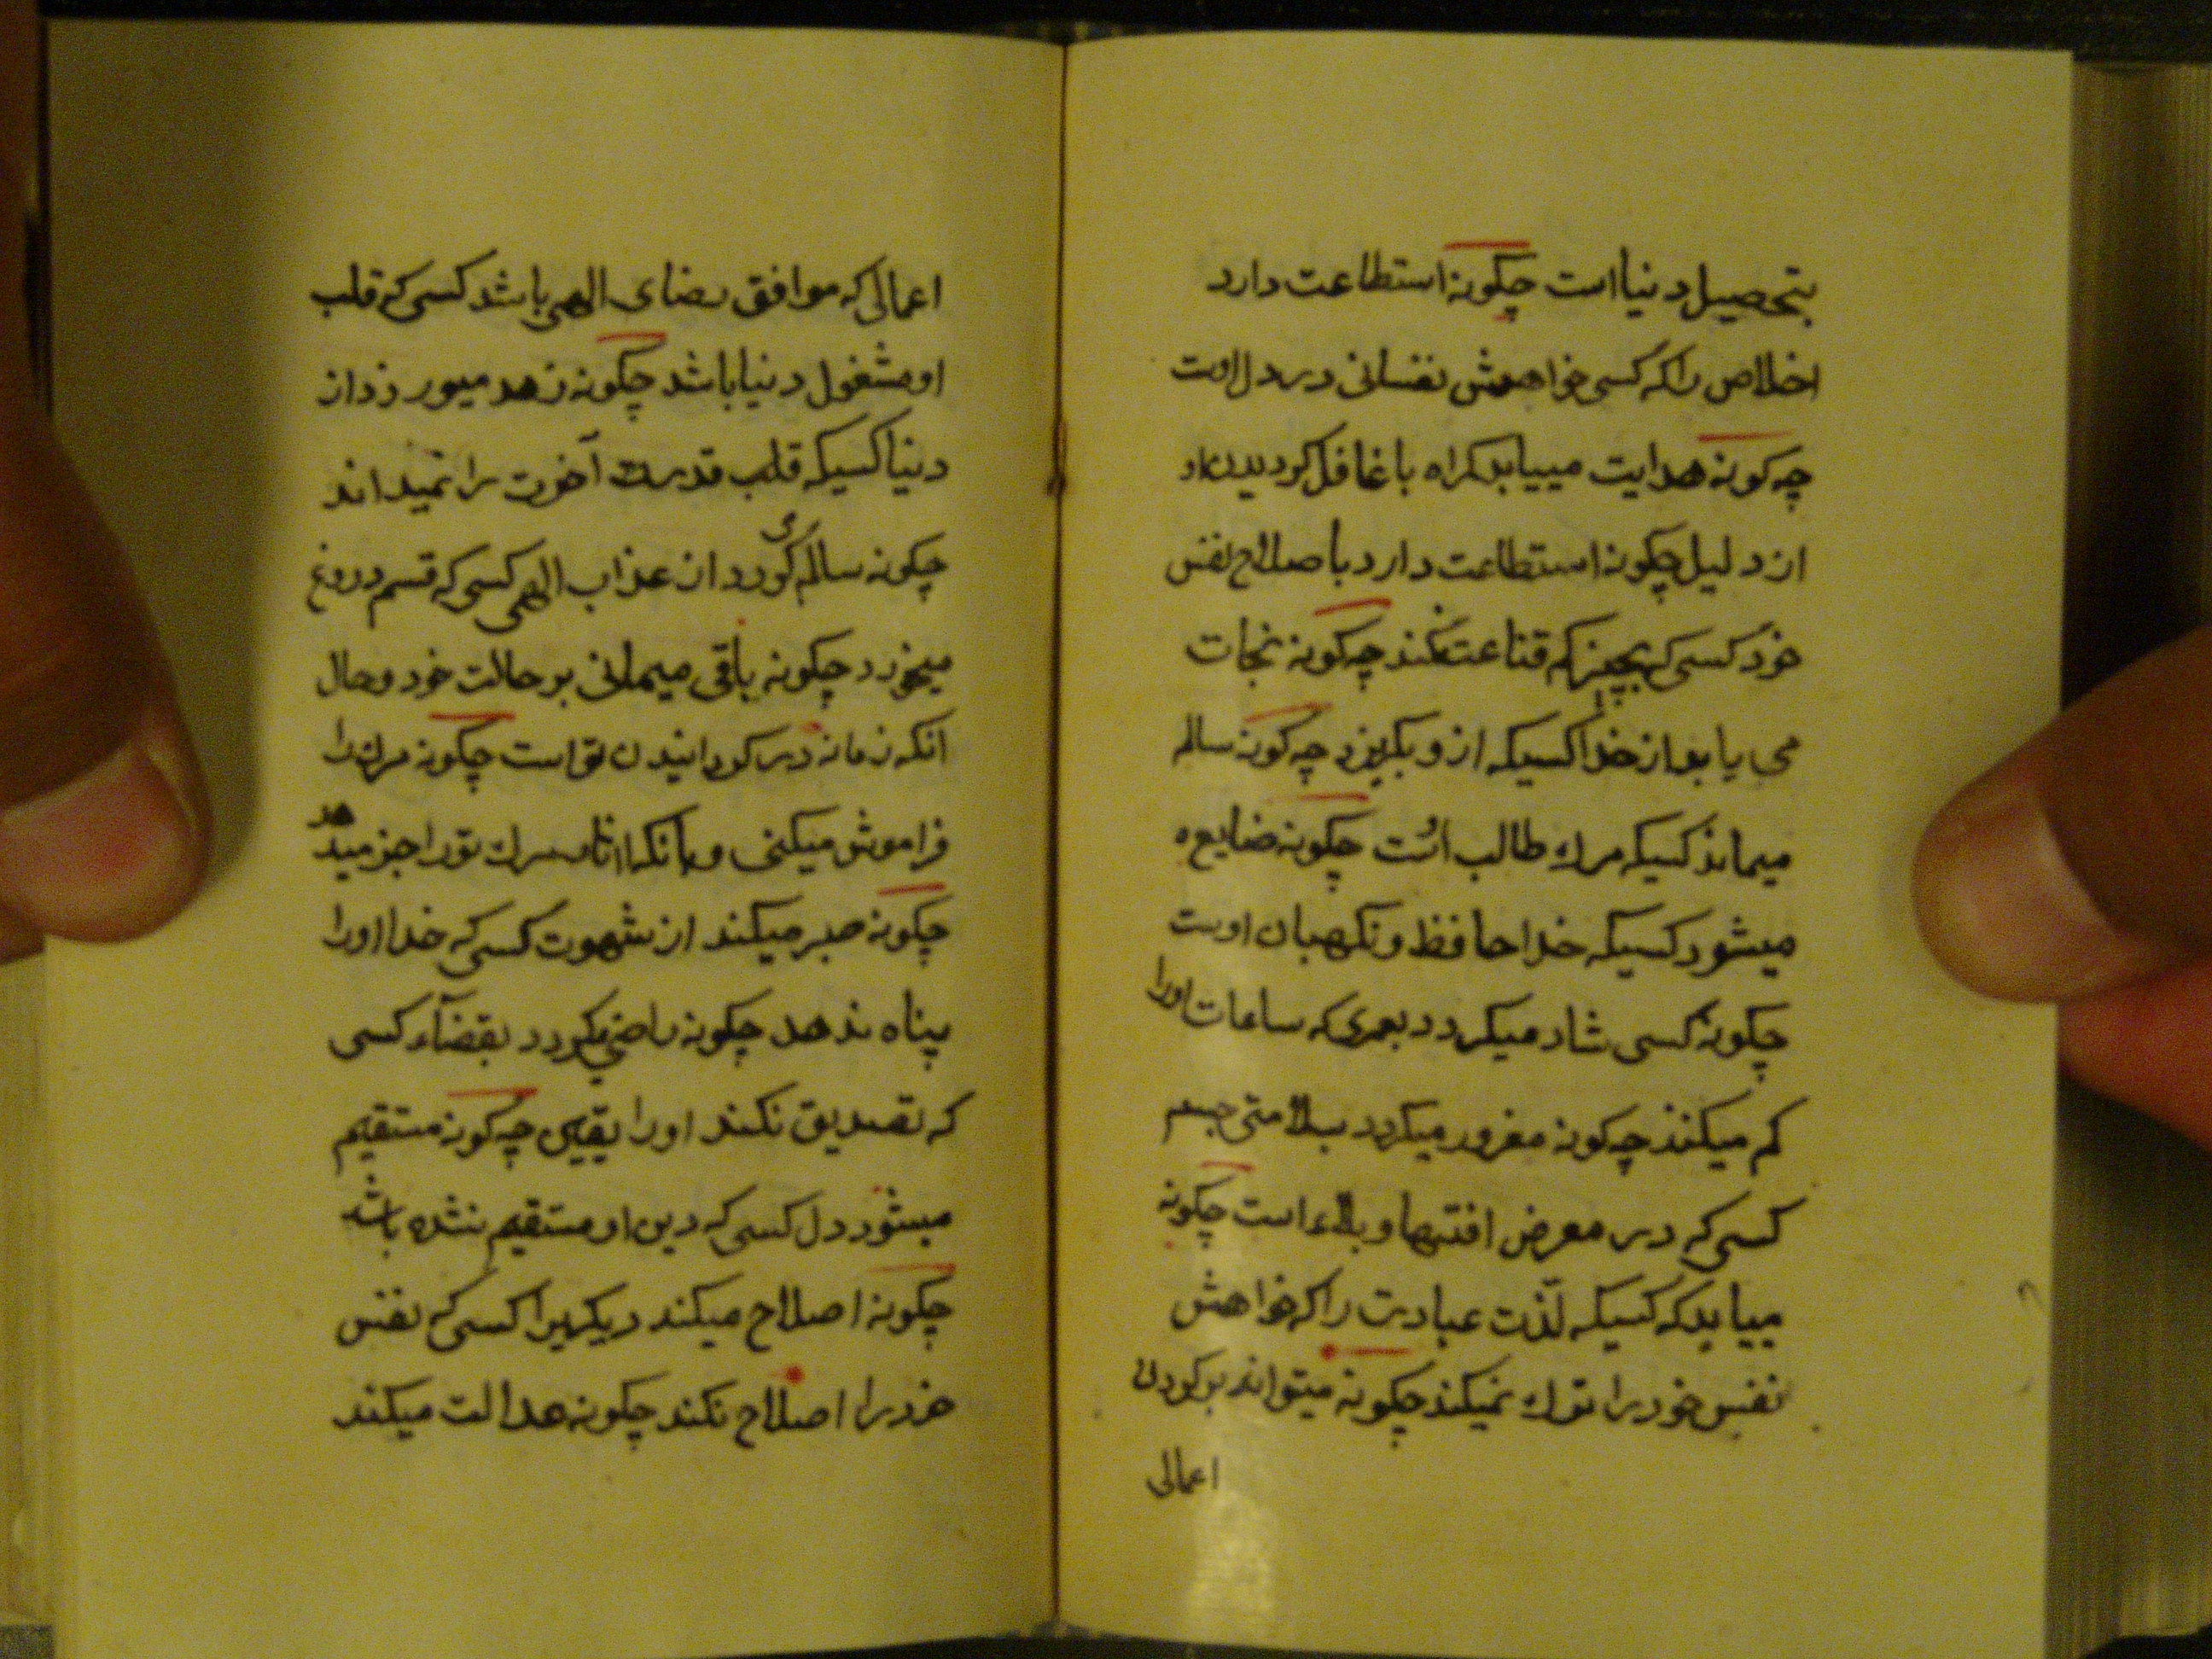 بتحصیل دنیا است چکونه استطاعت دارد
اخلاص را که کسی خواهش نفسانی در دل اوست
چه کونه هدایت مییابد کراه با غافل کردیدن او
از دلیل چکونه استطاعت دارد باصلاح نفس
خود کسی که بچیز کم قناعت نکند چه کونه نجات
می یابد از خدا کسیکه ازو بکریزد چه کونه سالم
میماند کسیکه مرك طالب اوست چکونه ضایع
میشود کسیکه خدا حافظ و نکهبان اوست
چکونه کسی شاد میکردد بعمری که ساعات اورا
کم میکند چه کونه مغرور میکردد بسلامتی جسم
کسی که در معرض افتها و بلاء است چکونه
مییابد که کسیکه لذت عبادت را که خواهش
نفس خود را ترك نمیکند چکونه میتواند بر کردن
اعمالی
اعمالی که موافق رضای الهی باشد کسی که قلب
او مشغول دنیا باشد چکونه زهد میورزد از
دنیا کسیکه قلب قدرت آخرت را نمیداند
چکونه سالم کردد از عذاب الهی کسی که قسم دروغ
میخورد چکونه باقی میمانی بر حالت خود و حال
انکه زمانه در کردانیدن تو است چکونه مرك را
فراموش میکنی و بانکه اثار مرك تو را خبر میدهد
چکونه صبر میکند از شهوت کسی که خدا اورا
پناه ندهد چکونه راضی میکردد بقضآء کسی
که تصدیق نکند اورا یقین چه کونه مستقیم
میشود دل کسی که دین او مستقیم نشده باشد
چکونه اصلاح میکند دیکریرا کسی که نفس
خود را اصلاح نکند چکونه عدالت میکند